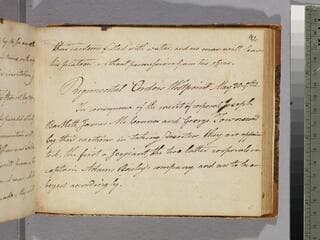 their canteens filled with water, and no man will leave
his platoon without permission from his officer.
Regimental Orders West point, May 30th 82.
In consequence of the merit of corporal Joseph
Bartlett James M. Connor and George Townsend
by their exertions in taking Deserters, they are appoin
ted, the first a serjeant, the two latter corporals in
captain Adams Bailey's company and are to be o
beyed accordingly.